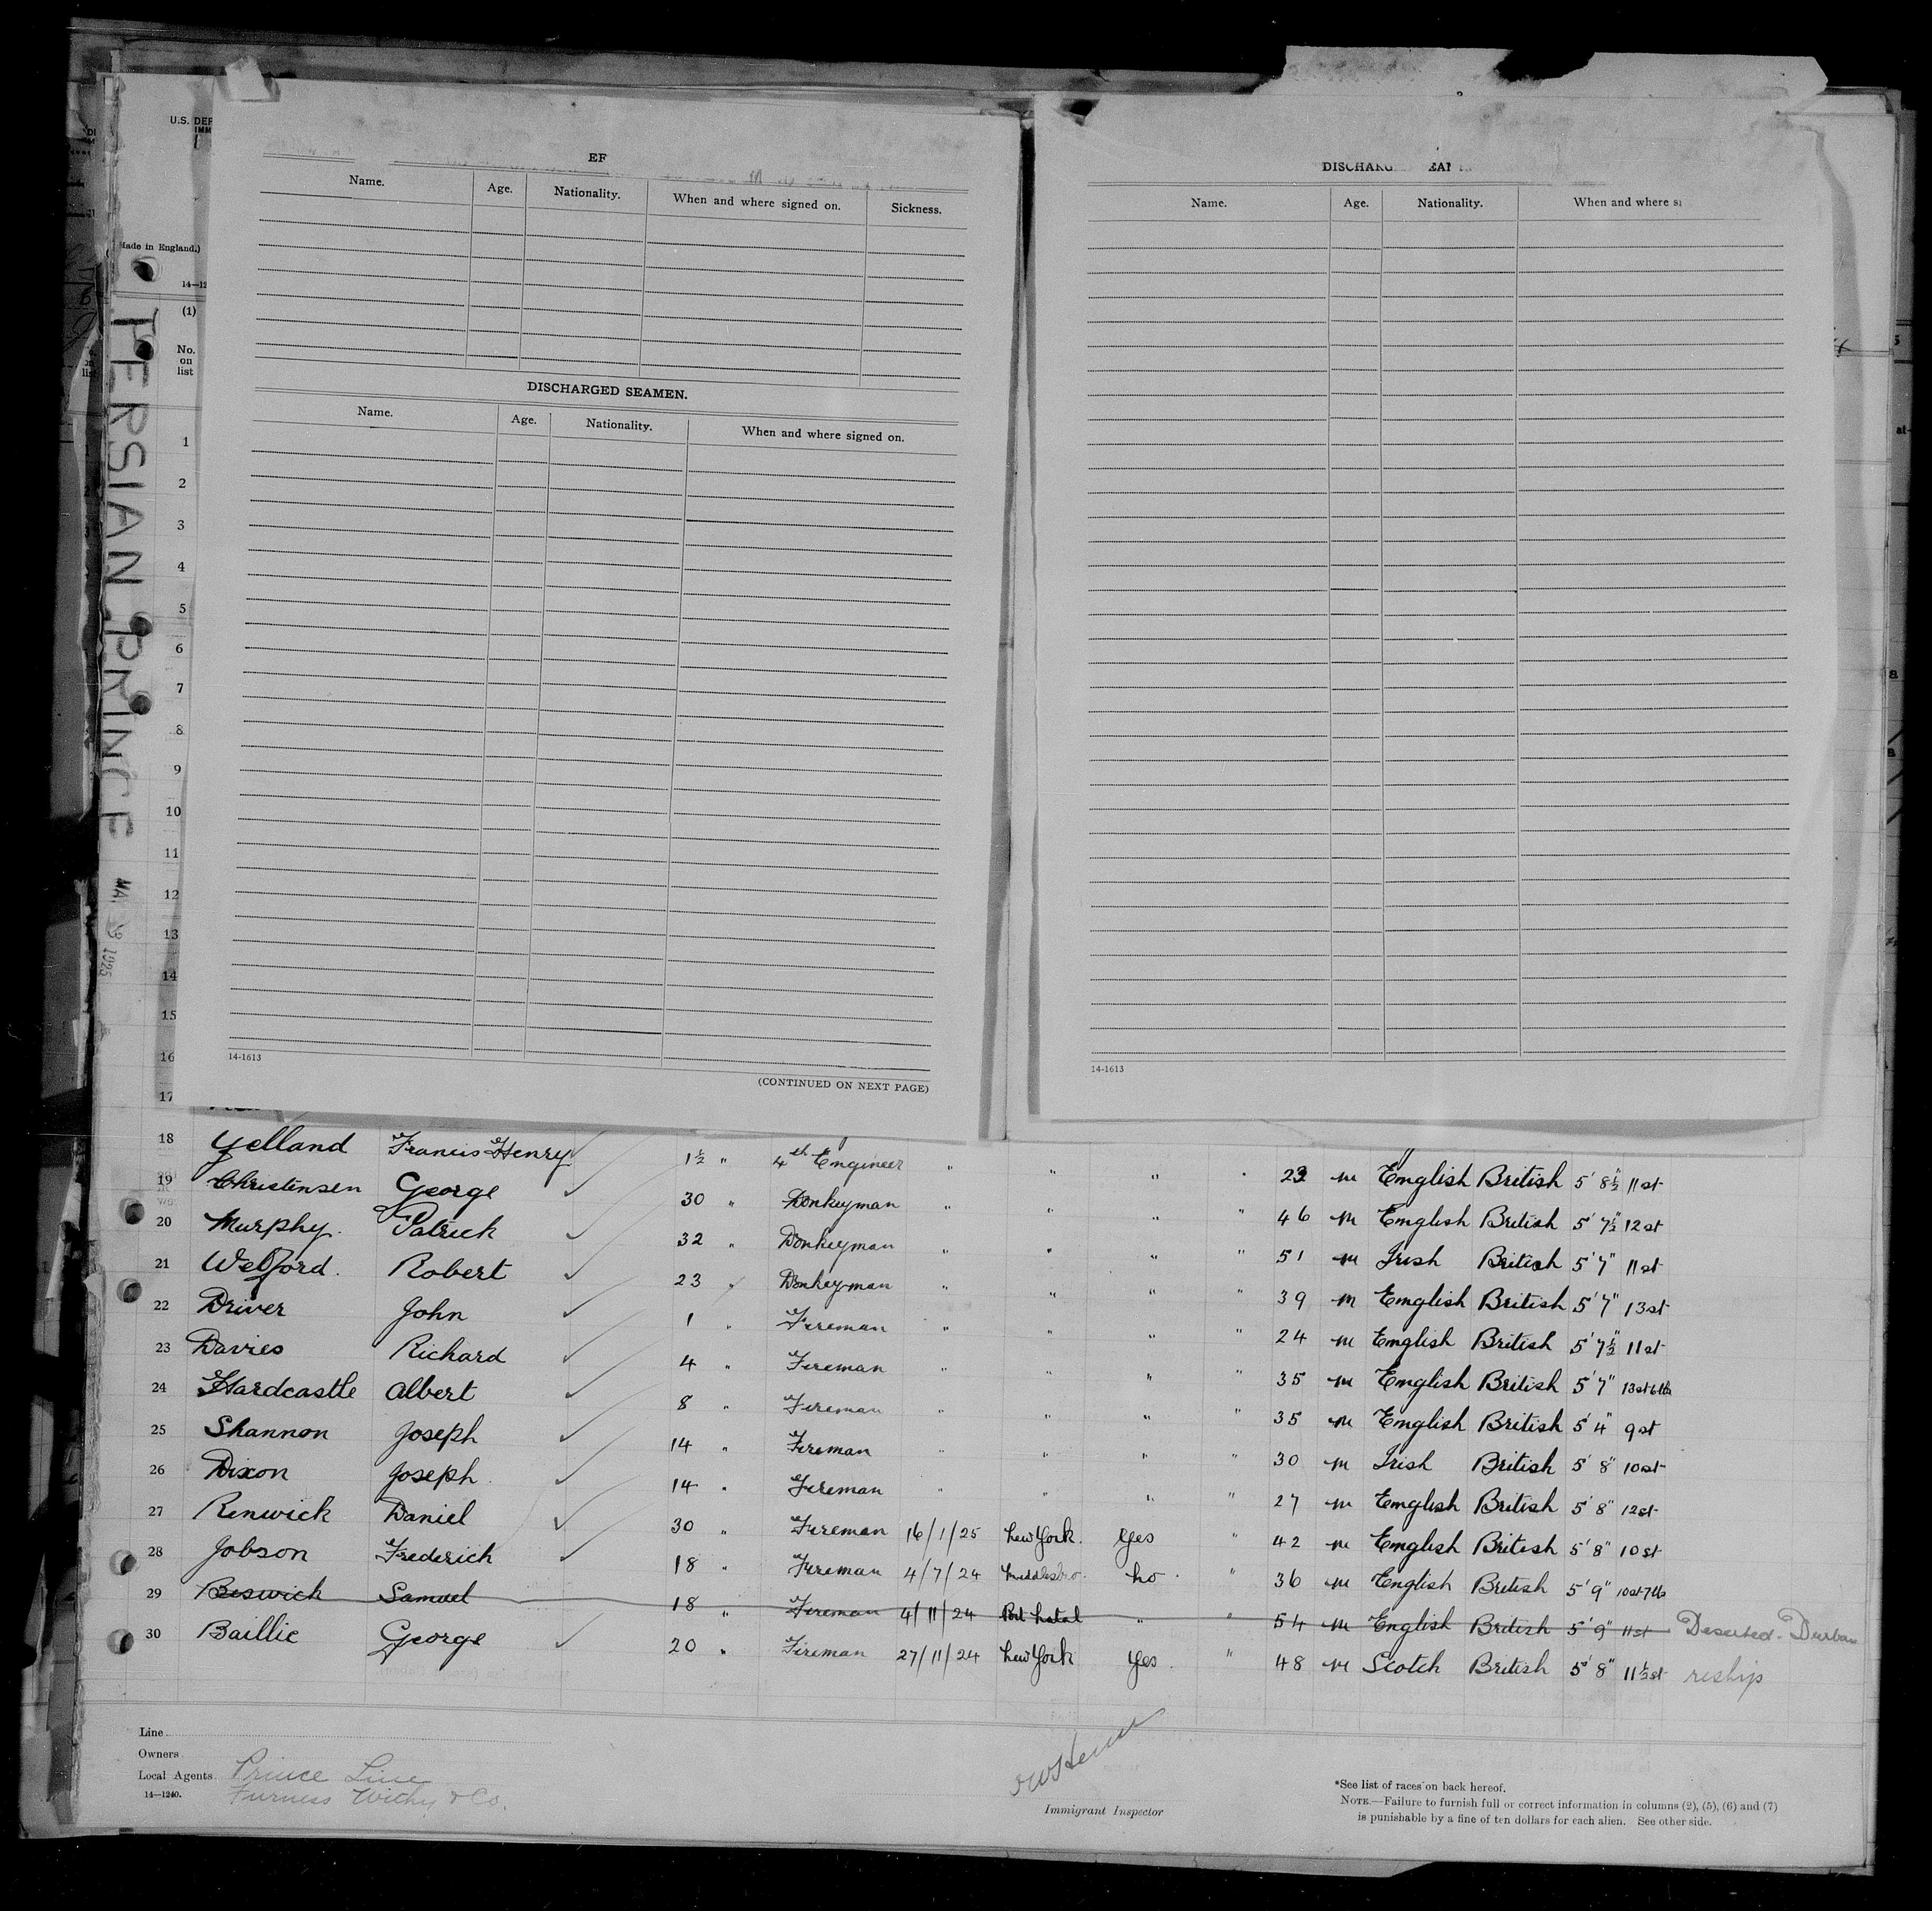 U.S. DEP
IMM
Made in England.)
14—12
(1)
No.
on
list
PERSIAN PRINCE
1925
EF
Name. Age. Nationality. When and where signed on. Sickness.
DISCHARGED SEAMEN.
Name. Age. Nationality. When and where signed on.
14-1613
(CONTINUED ON NEXT PAGE)
DISCHARG EAM
Name. Age. Nationality. When and where si
14-1613
1
2
3
4
5
6
7
8
9
10
11
12
13
14
15
16
17
18 Yelland Francis Henry 1½ " 4th Engineer " " " " 23 m English British 5' 8½" 11st
19 Christensen George 30 " Donkeyman " " " " 46 m English British 5' 7½" 12st
20 Murphy. Patrick 32 " Donkeyman " " " " 51 m Irish British 5' 7" 11st
21 Welford. Robert 23 " Donkeyman " " " " 39 m English British 5' 7" 13st
22 Driver John 1 " Fireman " " " " 24 m English British 5' 7½" 11st
23 Davies Richard 4 " Fireman " " " " 35 m English British 5' 7" 13st 6lb
24 Hardcastle Albert 8 " Fireman " " " " 35 m English British 5' 4" 9st
25 Shannon Joseph 14 " Fireman " " " " 30 m Irish British 5' 8" 10st
26 Dixon Joseph 14 " Fireman " " " " 27 m English British 5' 8" 12st
27 Renwick Daniel 30 " Fireman 16/1/25 New York. Yes " 42 m English British 5' 8" 10st
28 Jobson Frederich 18 " Fireman 4/7/24 Middlesbro. No " 36 m English British 5' 9" 10st 7lb
29 Beswick Samuel 18 " Fireman 4/11/24 Port Natal " " 54 m English British 5' 9" 11st Deserted - Durban
30 Baillie George 20 " Fireman 27/11/24 New York Yes " 48 m Scotch British 5' 8" 11½st reship
Line
Owners
Local Agents Prince Line
Furness Withy & Co.
14—1240.
Immigrant Inspector
*See list of races on back hereof.
NOTE.—Failure to furnish full or correct information in columns (2), (5), (6) and (7)
is punishable by a fine of ten dollars for each alien. See other side.